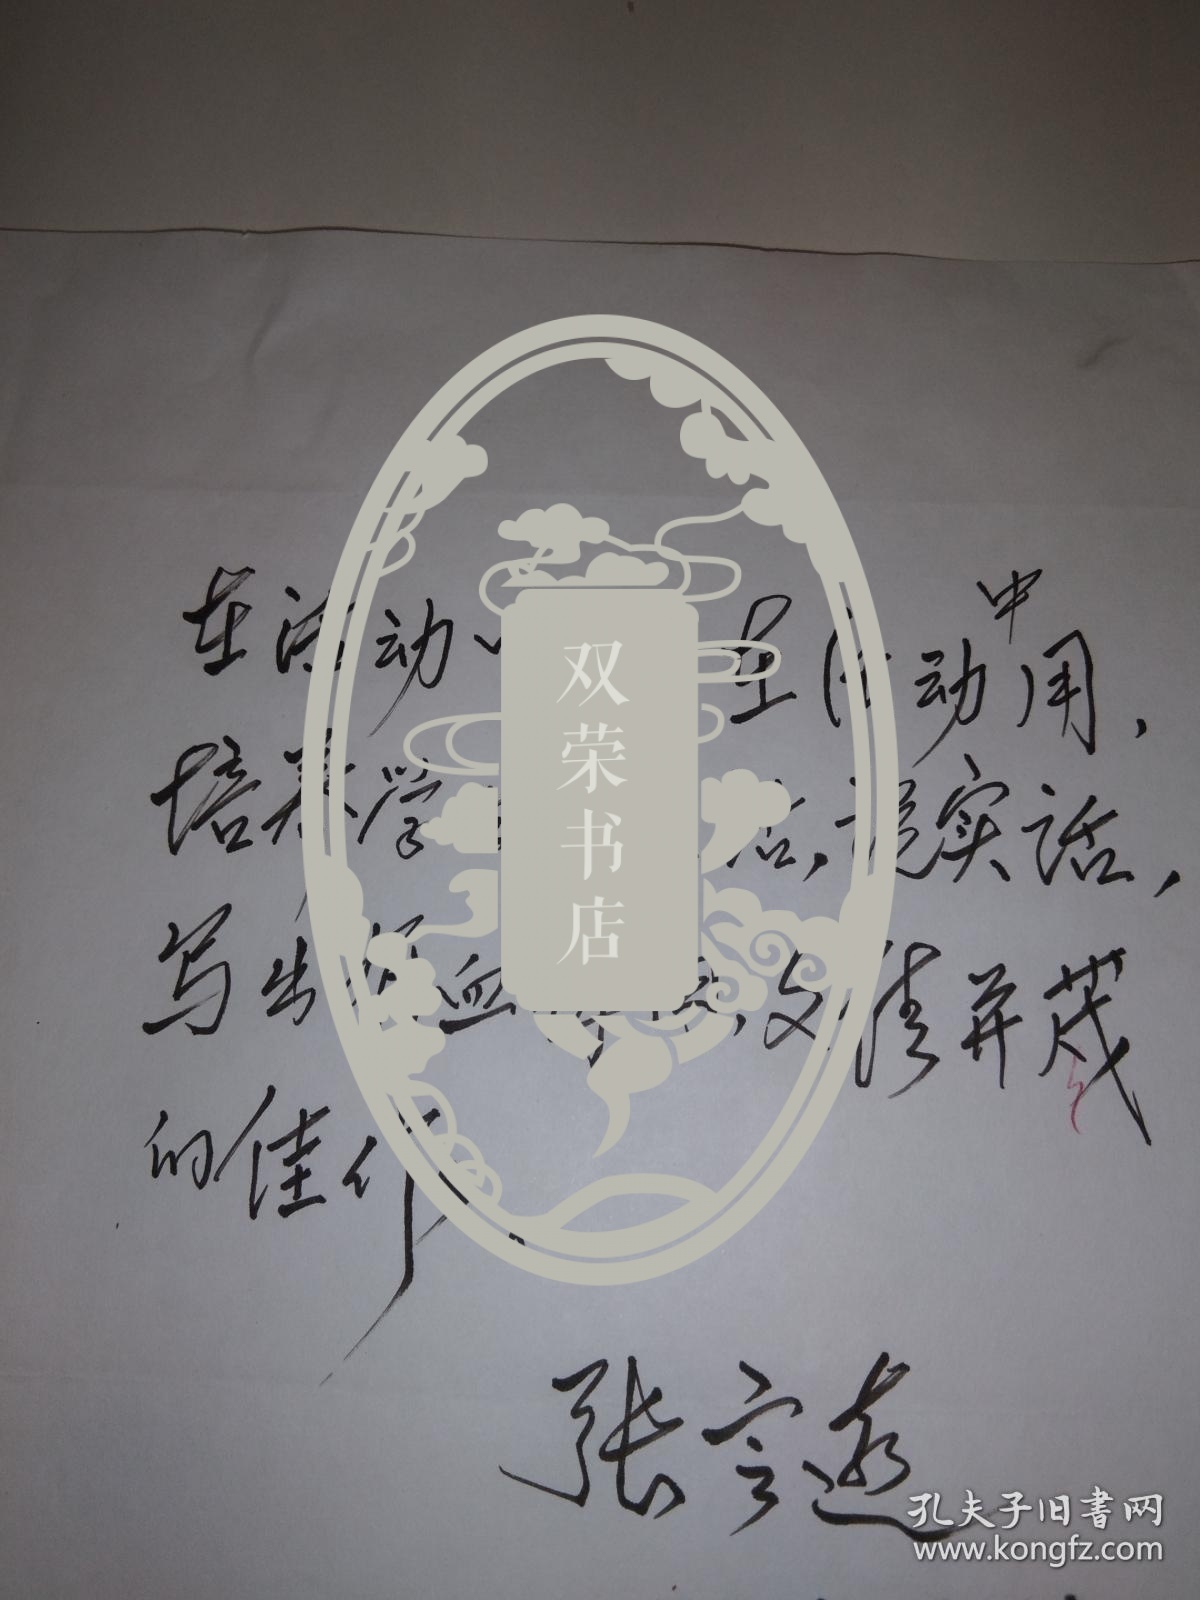 在活动 在活动中用，
培养学 话，说实话，
写出 血 文情并茂
的佳作
张
双荣书店
孔夫子旧书网
www.kongfz.com